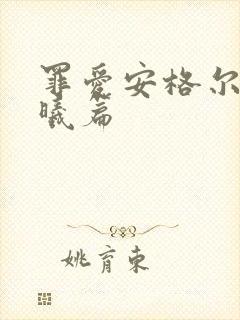 罪爱安格尔
曦篇
姚育东